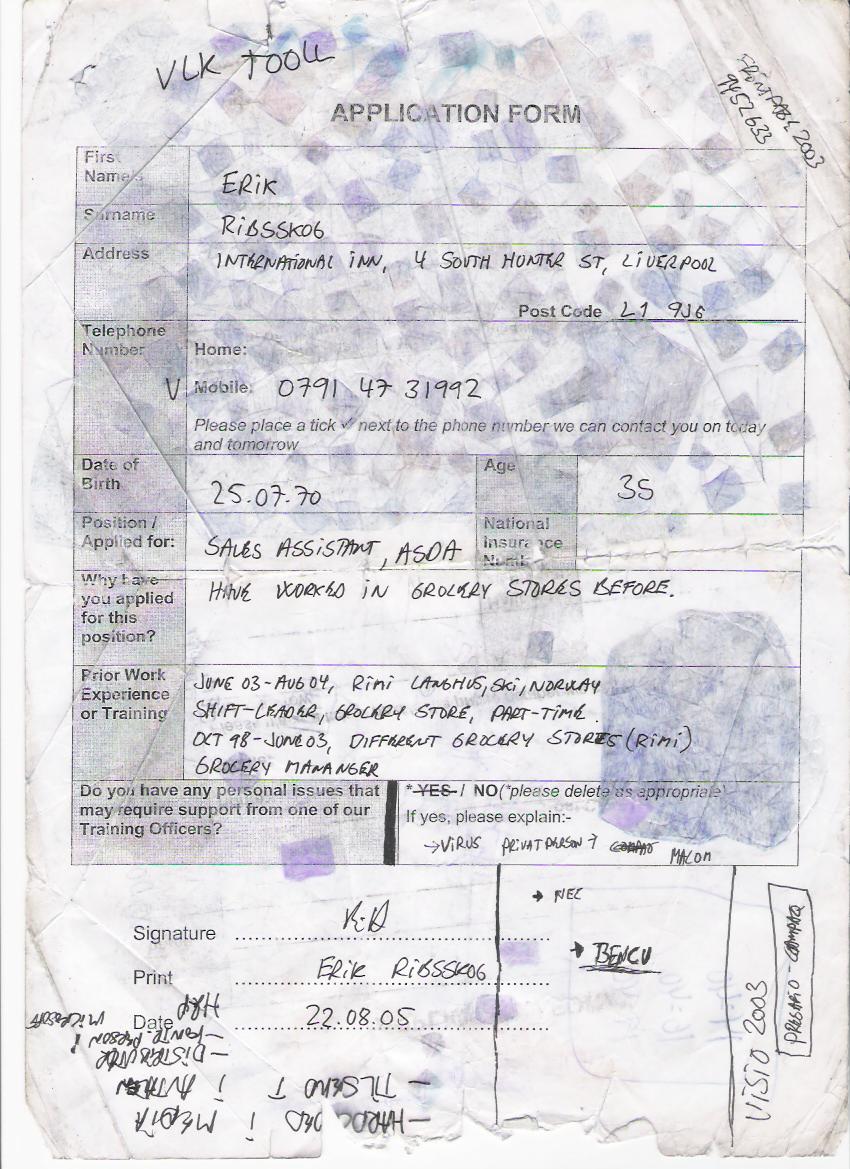 VLK TOOLL
FRONTPAGE 2003
9452633
APPLICATION FORM
First Names
ERIK
Surname
RIBSSKOG
Address
INTERNATIONAL INN, 4 SOUTH HUNTER ST, LIVERPOOL
Post Code L1 9JG
Telephone Number
Home:
V Mobile: 0791 47 31992
Please place a tick ✓ next to the phone number we can contact you on today
and tomorrow
Date of Birth
25.07.70
Age
35
Position / Applied for:
SALES ASSISTANT, ASDA
National Insurance Number
Why have you applied for this position?
HAVE WORKED IN GROCERY STORES BEFORE.
Prior Work Experience or Training
JUNE 03-AUG 04, RIMI LANGHUS, SKI, NORWAY
SHIFT-LEADER, GROCERY STORE, PART-TIME.
OCT 98-JUNE 03, DIFFERENT GROCERY STORES (RIMI)
GROCERY MANANGER
Do you have any personal issues that
may require support from one of our
Training Officers?
*YES / NO (*please delete as appropriate)
If yes, please explain:-
→VIRUS PRIVATPERSON ? MALOM
→ NEC
Signature
→ BENCU
Print ERIK RIBSSKOG
Date 22.08.05
VISIO 2003
PRESARIO - COMPAQ
MICROSOFT
- DISTRIBUTØR
HARDDISK
MEDIA